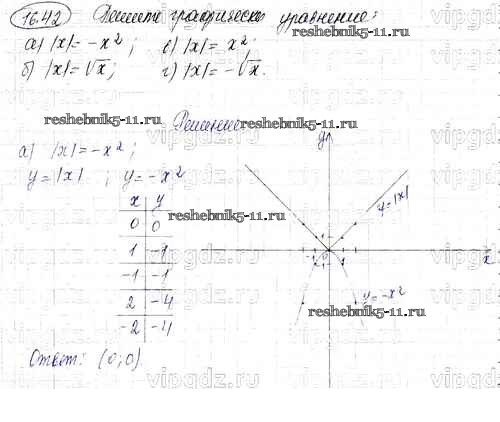 16.42 Решите графически уравнение:
а) |x| = -x²; в) |x| = x²;
б) |x| = √x; г) |x| = -√x.
reshebnik5-11.ru
reshebnik5-11.ru reshebnik5-11.ru
Решение
а) |x| = -x²;
y = |x| ; y = -x²
x y
0 0
1 -1
-1 -1
2 -4
-2 -4
reshebnik5-11.ru
y
y=|x|
-1 0 1
x
y=-x²
reshebnik5-11.ru
Ответ: (0;0)
vipgdz.ru vipgdz.ru vipgdz.ru